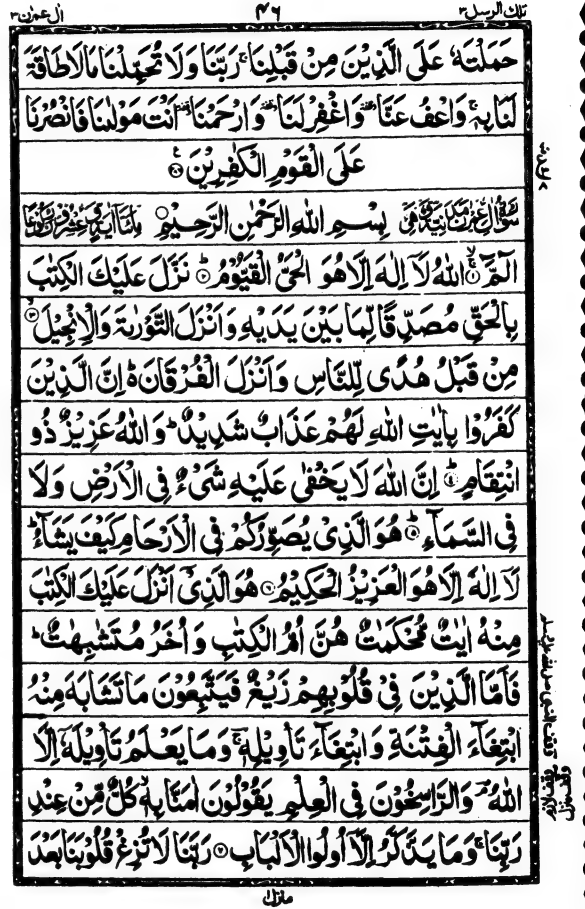 تلك الرسل ٣ ٤٦ ال عمرٰن ٣
حَمَلْتَهٗ عَلَى الَّذِيْنَ مِنْ قَبْلِنَا ۚ رَبَّنَا وَلَا تُحَمِّلْنَا مَا لَا طَاقَةَ
لَنَا بِهٖ ۚ وَاعْفُ عَنَّا ۥ وَاغْفِرْ لَنَا ۥ وَارْحَمْنَا ۥ اَنْتَ مَوْلٰىنَا فَانْصُرْنَا
عَلَى الْقَوْمِ الْكٰفِرِيْنَ ۝
بِسْمِ اللّٰهِ الرَّحْمٰنِ الرَّحِيْمِ ۝
الٓمّٓ ۝ اللّٰهُ لَاۤ اِلٰهَ اِلَّا هُوَ الْحَىُّ الْقَيُّوْمُ ۝ نَزَّلَ عَلَيْكَ الْكِتٰبَ
بِالْحَقِّ مُصَدِّقًا لِّمَا بَيْنَ يَدَيْهِ وَاَنْزَلَ التَّوْرٰىةَ وَالْاِنْجِيْلَ ۝
مِنْ قَبْلُ هُدًى لِّلنَّاسِ وَاَنْزَلَ الْفُرْقَانَ ۥ اِنَّ الَّذِيْنَ
كَفَرُوْا بِاٰيٰتِ اللّٰهِ لَهُمْ عَذَابٌ شَدِيْدٌ ؕ وَاللّٰهُ عَزِيْزٌ ذُو
انْتِقَامٍ ۝ اِنَّ اللّٰهَ لَا يَخْفٰى عَلَيْهِ شَىْءٌ فِى الْاَرْضِ وَلَا
فِى السَّمَآءِ ۝ هُوَ الَّذِىْ يُصَوِّرُكُمْ فِى الْاَرْحَامِ كَيْفَ يَشَآءُ ؕ
لَاۤ اِلٰهَ اِلَّا هُوَ الْعَزِيْزُ الْحَكِيْمُ ۝ هُوَ الَّذِىْۤ اَنْزَلَ عَلَيْكَ الْكِتٰبَ
مِنْهُ اٰيٰتٌ مُّحْكَمٰتٌ هُنَّ اُمُّ الْكِتٰبِ وَاُخَرُ مُتَشٰبِهٰتٌ ؕ
فَاَمَّا الَّذِيْنَ فِىْ قُلُوْبِهِمْ زَيْغٌ فَيَتَّبِعُوْنَ مَا تَشَابَهَ مِنْهُ
ابْتِغَآءَ الْفِتْنَةِ وَابْتِغَآءَ تَاْوِيْلِهٖ ۚ وَمَا يَعْلَمُ تَاْوِيْلَهٗۤ اِلَّا
اللّٰهُ ۘ وَالرّٰسِخُوْنَ فِى الْعِلْمِ يَقُوْلُوْنَ اٰمَنَّا بِهٖ ۙ كُلٌّ مِّنْ عِنْدِ
رَبِّنَا ۚ وَمَا يَذَّكَّرُ اِلَّاۤ اُولُوا الْاَلْبَابِ ۝ رَبَّنَا لَا تُزِغْ قُلُوْبَنَا بَعْدَ
منزل ١